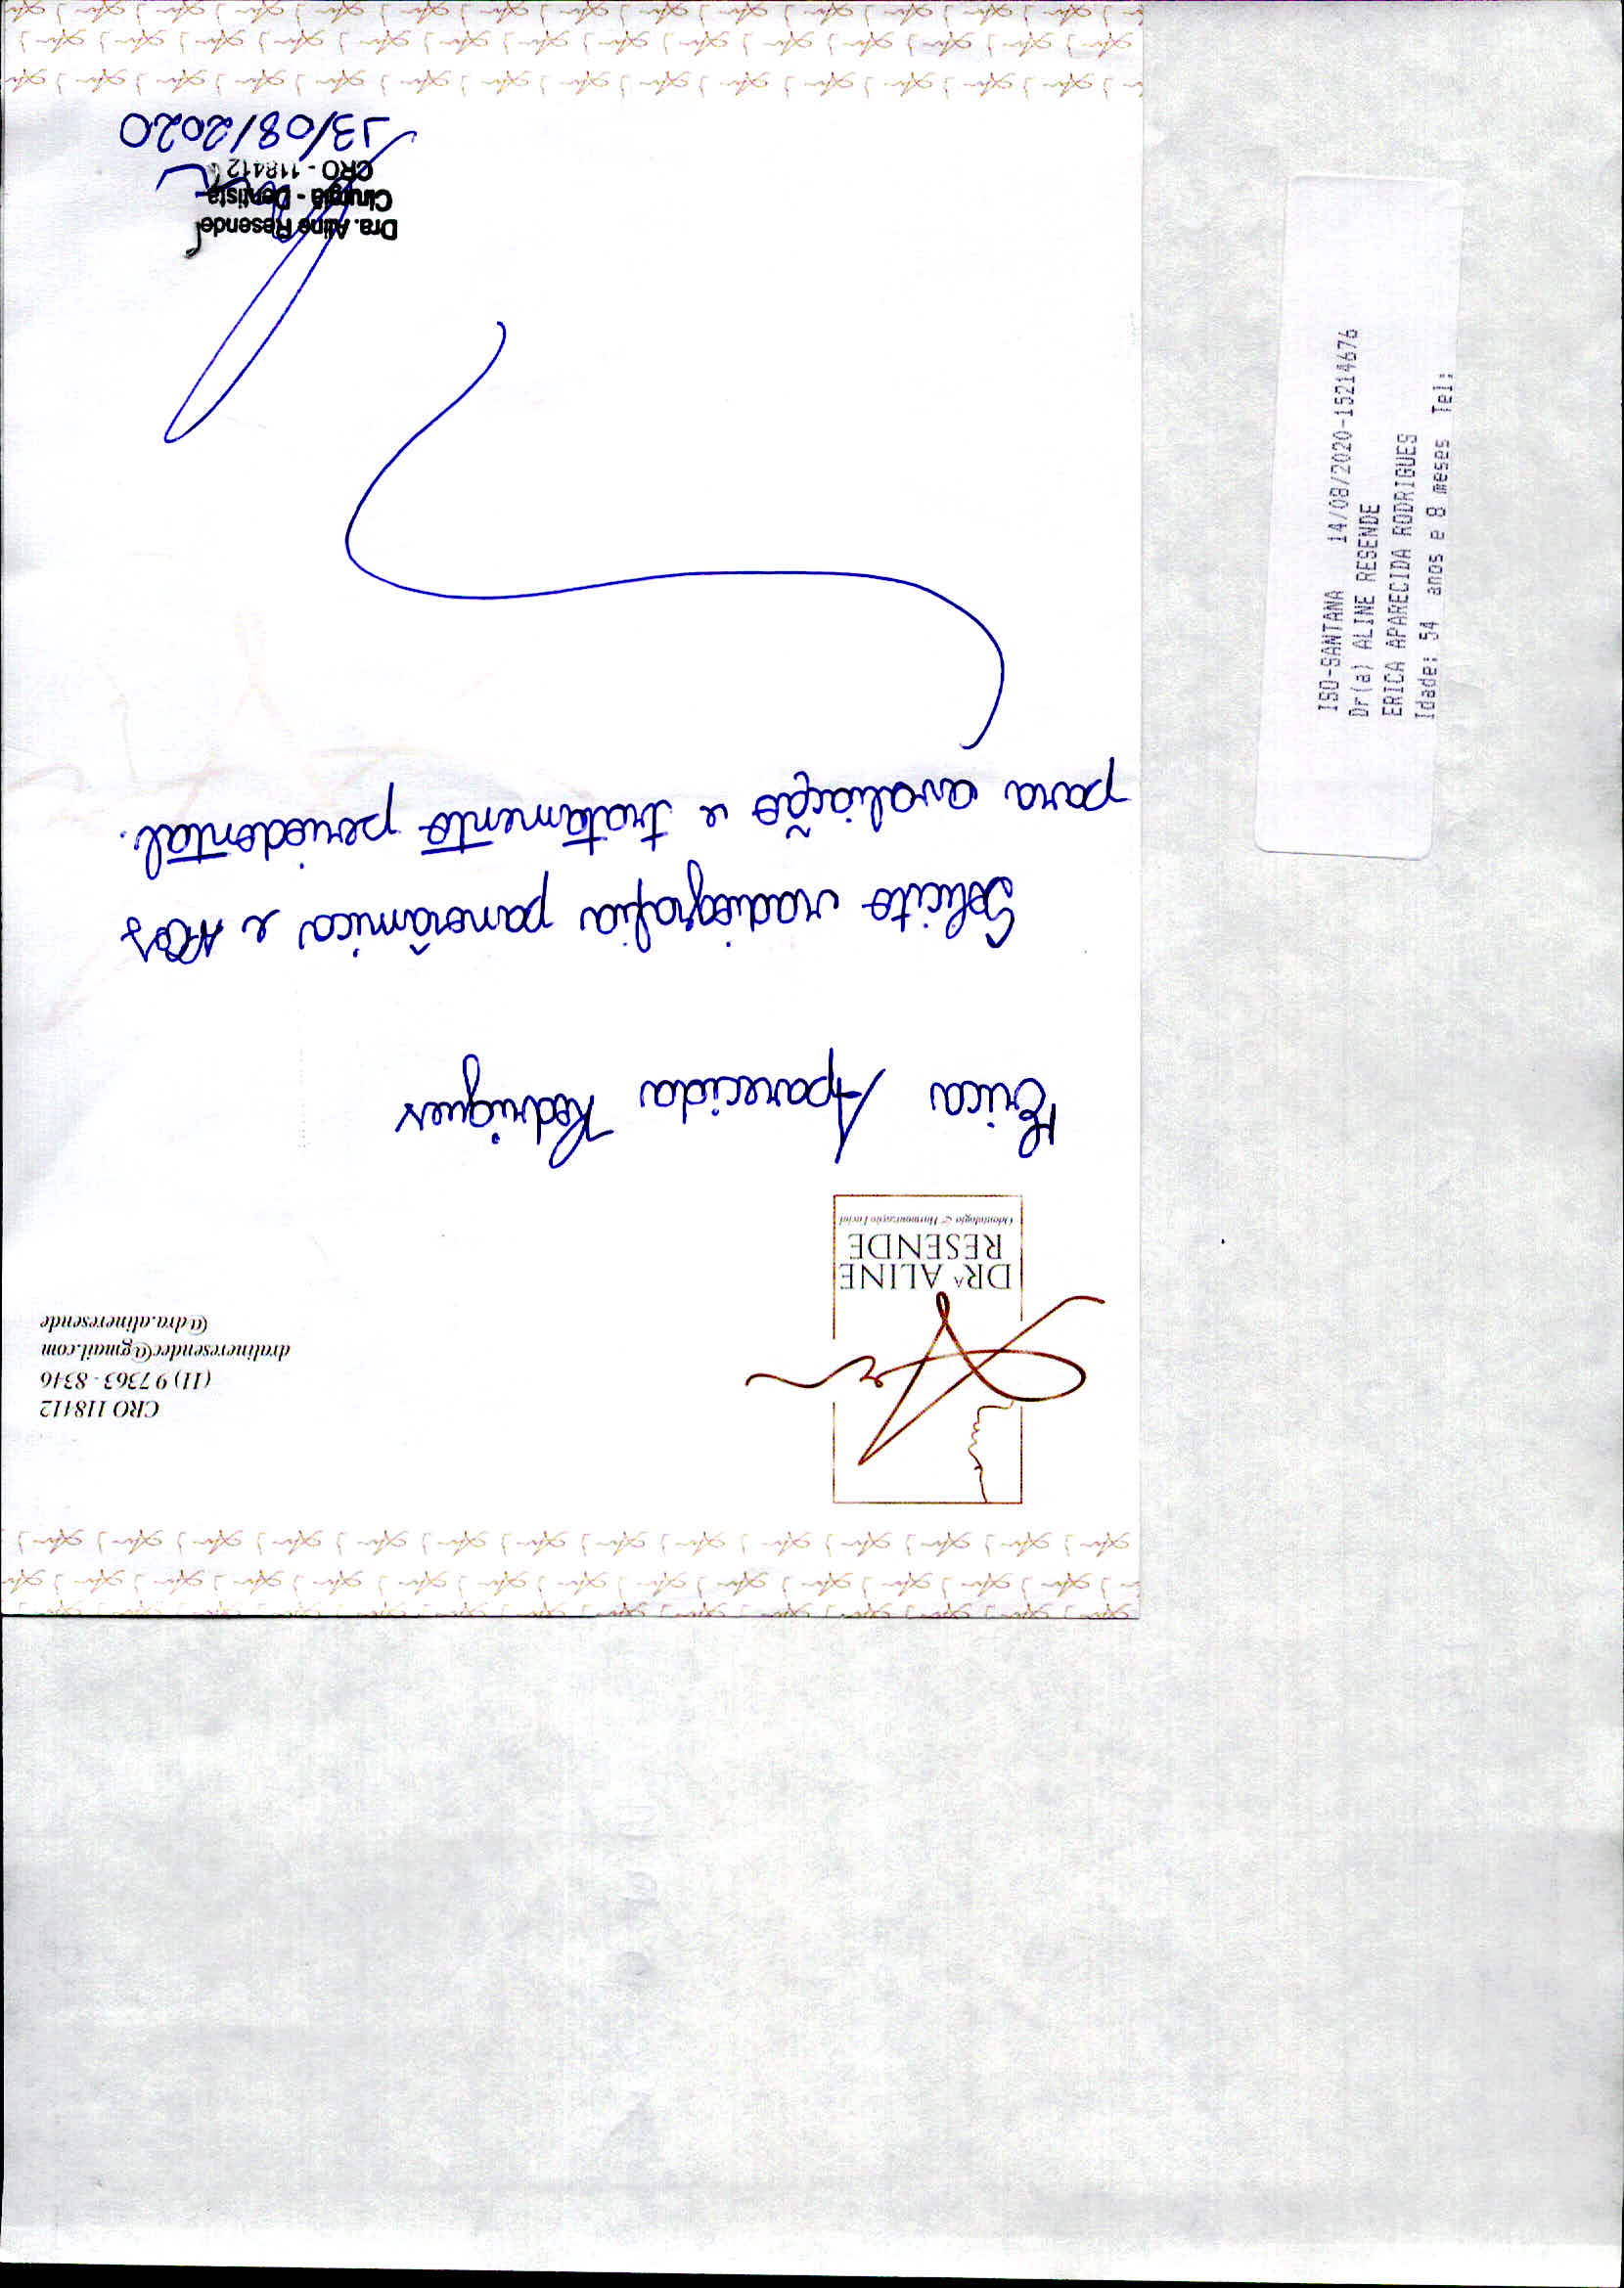 DRA ALINE
RESENDE
Odontologia & Harmonização Facial
CRO 118412
(11) 9 7363 - 8346
draalineresender@gmail.com
@dra.alineresende
Erica Aparecida Rodrigues
Solicito radiografia panorâmica e
para avaliação e tratamento periodontal.
Dra. Aline Resende
Cirurgiã - Dentista
CRO - 118412
13/08/2020
ISO-SANTANA 14/08/2020-15214676
Dr(a) ALINE RESENDE
ERICA APARECIDA RODRIGUES
Idade: 54 anos e 8 meses Tel: